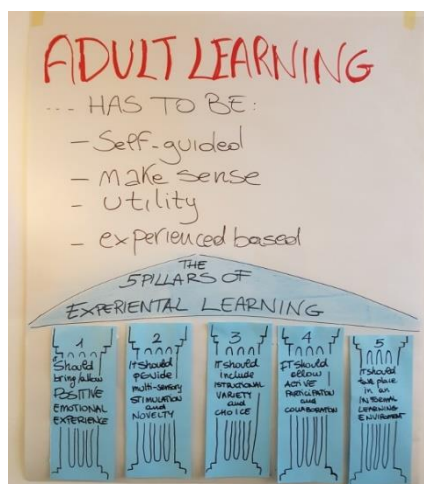 ADULT LEARNING
... HAS TO BE:
- Self-guided
- make sense
- utility
- experienced based
THE
5 PILLARS OF
EXPERIENTAL LEARNING
1
It Should
bring/allow
POSITIVE
EMOTIONAL
EXPERIENCE
2
IT Should
PROVIDE
multi-sensory
STIMULATION
and
NOVELTY
3
IT should
include
ISTRUCTIONAL
VARIETY
and
CHOICE
4
IT should
allow
ACTIVE
PARTICIPATION
and
COLLABORATION
5
IT should
take place
in an
INFORMAL
LEARNING